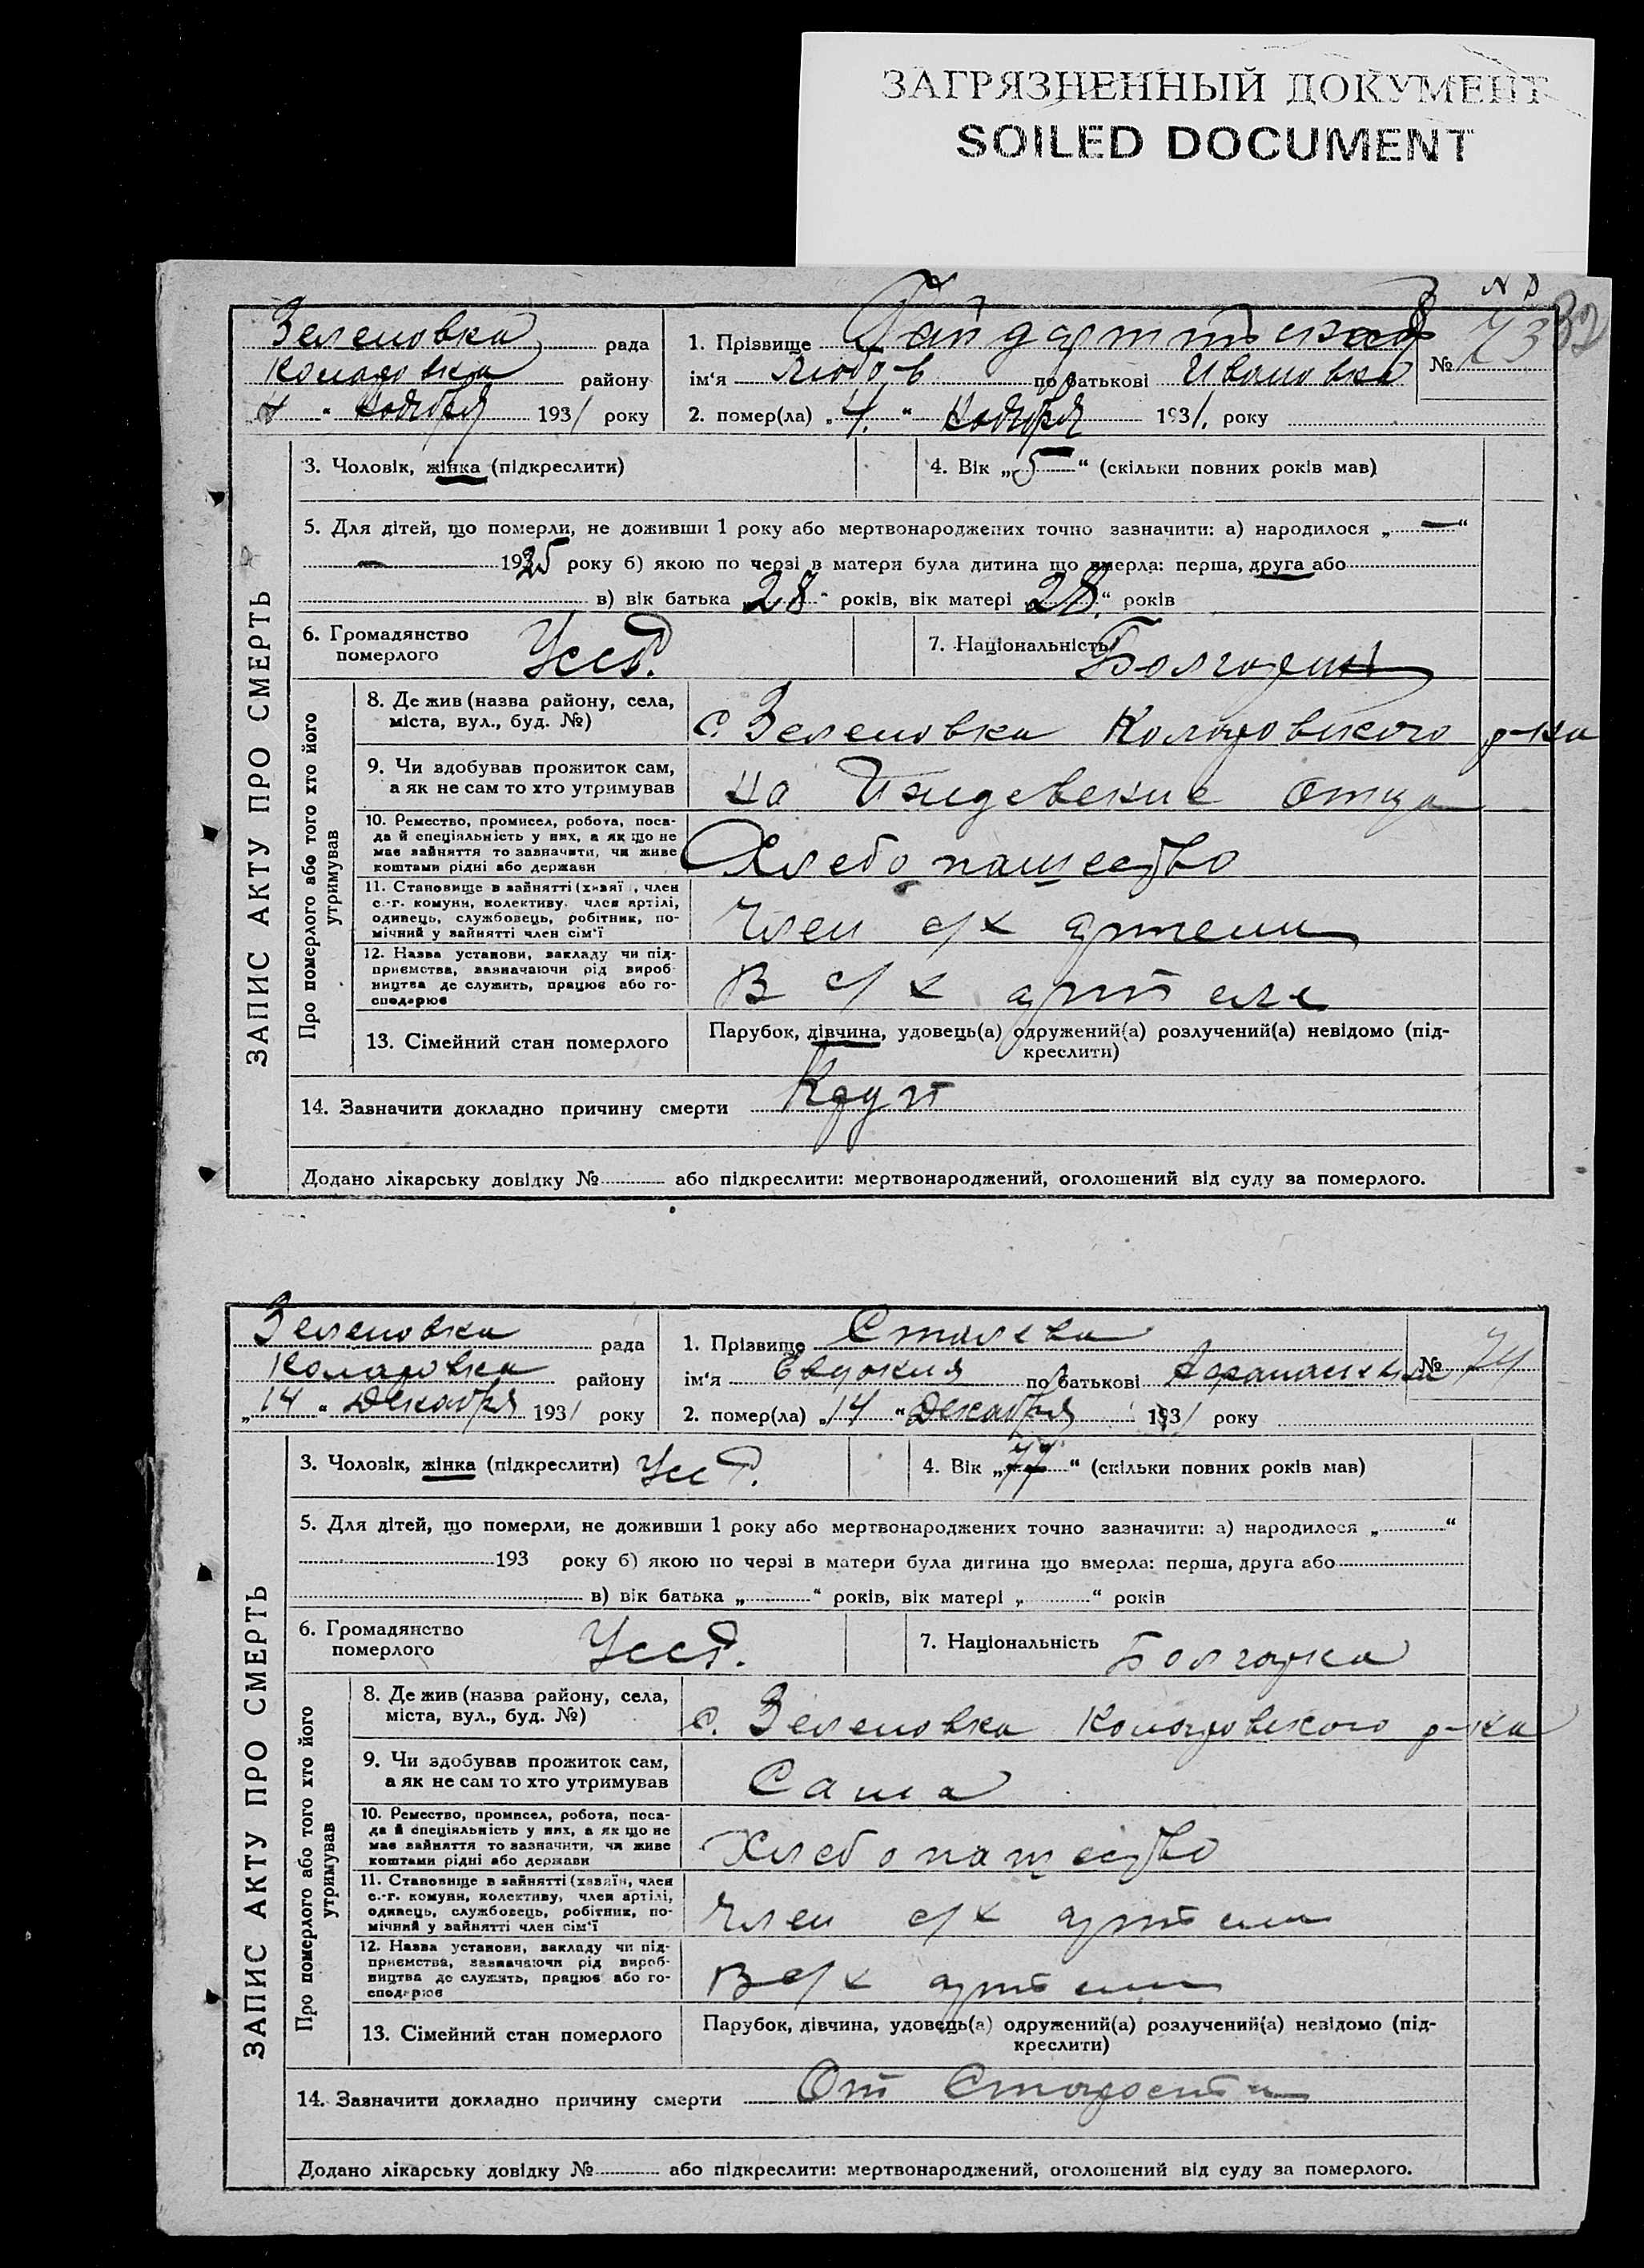 ЗАГРЯЗНЕННЫЙ ДОКУМЕНТ
SOILED DOCUMENT
32
Зеленовка рада
района Коларовка району
4 " Ноября 1931 року
1. Прізвище
№ 73
ім'я Любовь по батькові Ивановна
2. помер(ла) „4." Ноября 1931. року
ЗАПИС АКТУ ПРО СМЕРТЬ
3. Чоловік, жінка (підкреслити)
4. Вік „5" (скільки повних років мав)
5. Для дітей, що померли, не доживши 1 року або мертвонароджених точно зазначити: а) народилося „—"
— 1925 року б) якою по черзі в матери була дитина що вмерла: перша, друга або
в) вік батька „28" років, вік матері „28" років
6. Громадянство померлого УССР.
7. Національність Болгарин
Про померлого або того хто його утримував
8. Де жив (назва району, села,
міста, вул., буд. №)
с. Зеленовка Коларовского р-на
9. Чи здобував прожиток сам,
а як не сам то хто утримував
На Иждевение Отца
10. Ремество, промисел, робота, поса-
да й спеціяльність у них, а як що не
має зайняття то зазначити, чи живе
коштами рідні або держави
Хлебопашество
11. Становище в зайнятті (хазяї , член
с.-г. комуни, колективу, член артілі,
одинець, службовець, робітник, по-
мічний у зайнятті член сім'ї
Член с/х артели
12. Назва установи, закладу чи під-
приємства, зазначаючи рід вироб-
ництва де служить, працює або го-
сподарює
В с/х артеле
13. Сімейний стан померлого
Парубок, дівчина, удовець(а) одружений(а) розлучений(а) невідомо (під-
креслити)
14. Зазначити докладно причину смерти
Додано лікарську довідку № або підкреслити: мертвонароджений, оголошений від суду за померлого.
Зеленовка рада
Коларовка району
„14" Декабря 1931 року
1. Прізвище Сталева
№ 74
ім'я Евдокия по батькові Афанасиевна
2. помер(ла) „14" Декабря 1931 року
ЗАПИС АКТУ ПРО СМЕРТЬ
3. Чоловік, жінка (підкреслити) УССР.
4. Вік „77" (скільки повних років мав)
5. Для дітей, що померли, не доживши 1 року або мертвонароджених точно зазначити: а) народилося „"
193 року б) якою по черзі в матери була дитина що вмерла: перша, друга або
в) вік батька „" років, вік матері „" років
6. Громадянство померлого УССР.
7. Національність Болгарка
Про померлого або того хто його утримував
8. Де жив (назва району, села,
міста, вул., буд. №)
с. Зеленовка Коларовского р-на
9. Чи здобував прожиток сам,
а як не сам то хто утримував
Сама
10. Ремество, промисел, робота, поса-
да й спеціяльність у них, а як що не
має зайняття то зазначити, чи живе
коштами рідні або держави
Хлебопашество
11. Становище в зайнятті (хазяїн, член
с.-г. комуни, колективу, член артілі,
одинець, службовець, робітник, по-
мічний у зайнятті член сім'ї
Член с/х артели
12. Назва установи, закладу чи під-
приємства, зазначаючи рід вироб-
ництва де служить, працює або го-
сподарює
В с/х артели
13. Сімейний стан померлого
Парубок, дівчина, удовець(а) одружений(а) розлучений(а) невідомо (під-
креслити)
14. Зазначити докладно причину смерти От Старости
Додано лікарську довідку № або підкреслити: мертвонароджений, оголошений від суду за померлого.